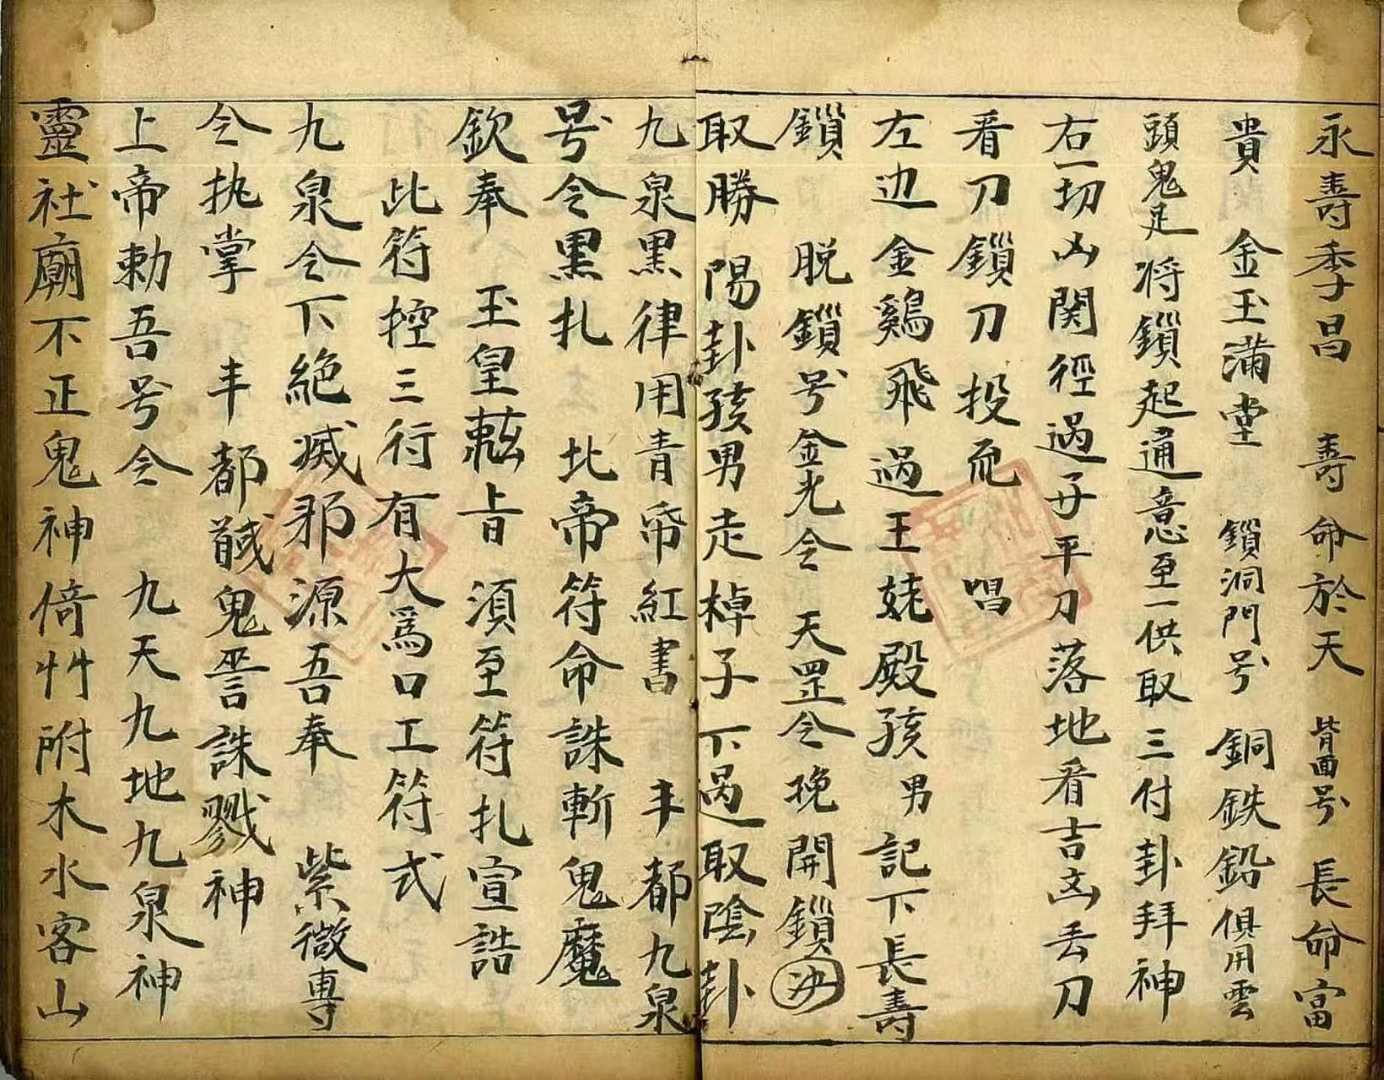 永壽季昌 壽命於天 背面号 長命富
貴 金玉滿堂 鎖洞門号 銅鉄鉛俱用雲
頭鬼足将鎖起通意至一供取三付卦拜神
右一切凶関徑過子平刀落地看吉凶丢刀
看刀鎖刀投而 唱
左边金鷄飛過王姥殿孩男記下長壽
鎖 脱鎖号金光令 天罡令挽開鎖
取勝陽卦孩男走棹子下過取陰卦
九泉黒律用青帋紅書 丰都九泉
号令黒扎 北帝符命誅斬鬼魔
欽奉 玉皇 旨 須至符扎宣誥
此符控三行有大爲口工符式
九泉令下絶滅邪源吾奉 紫微專
令执掌 丰都馘鬼 誅戮神
上帝勅吾号令 九天九地九泉神
靈社廟不正鬼神倚艸附木水客山